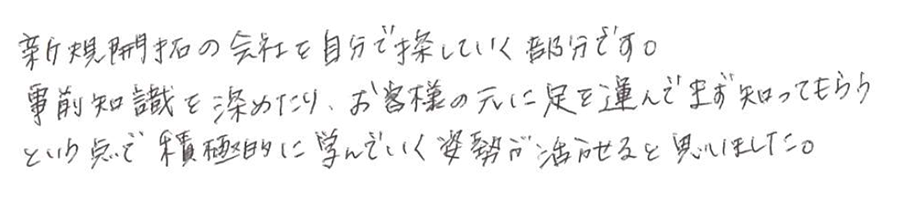 新規開拓の会社を自分で探していく部分です。
事前知識を深めたり、お客様の元に足を運んでまず知ってもらう
という点で積極的に学んでいく姿勢が活かせると思いました。